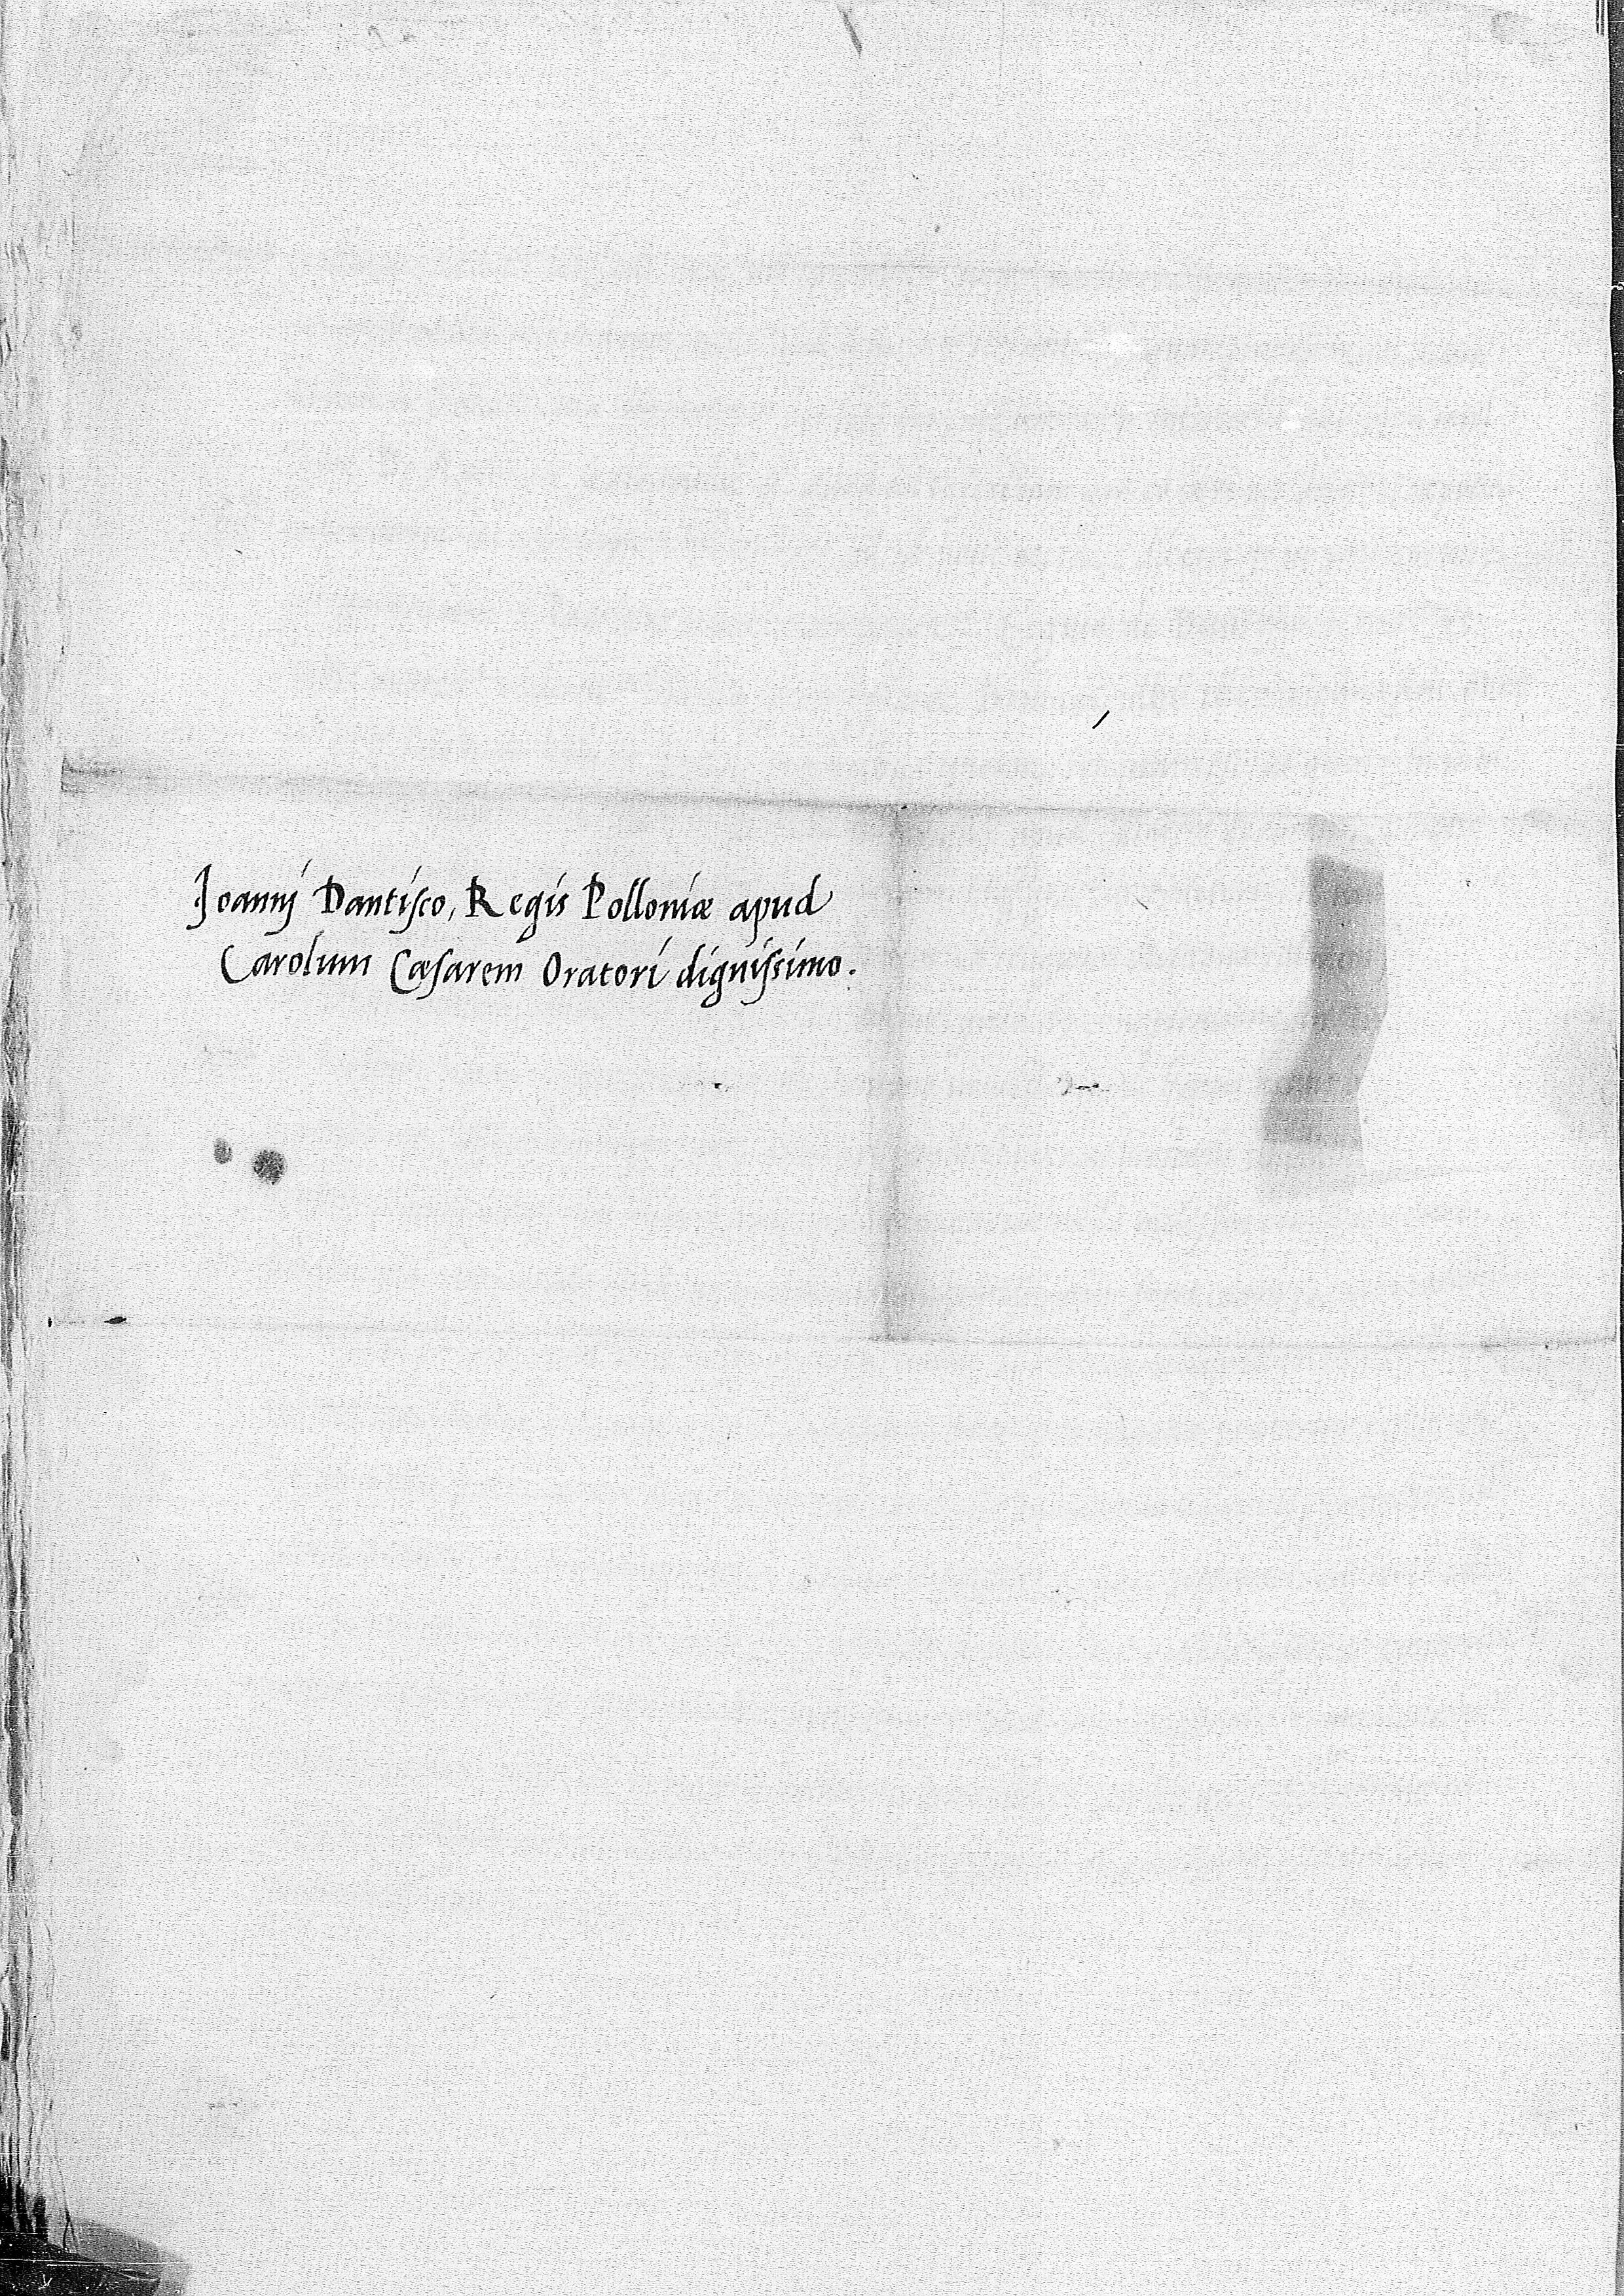 Joannj Dantisco, Regis Polloniæ apud
Carolum Cæsarem Oratori dignissimo.